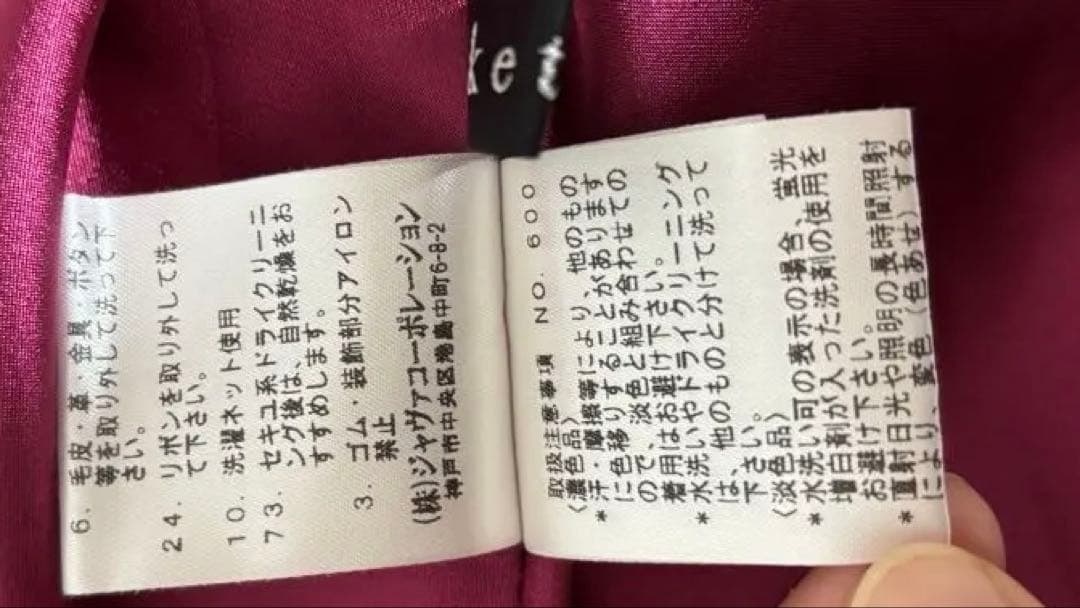 ket
6. 毛皮・革・金具・ボタン
等を取り外して洗って下
さい。
24. リボンを取り外して洗っ
て下さい。
10. 洗濯ネット使用
73. セキユ系ドライクリーニ
ング後は、自然乾燥をお
すすめします。
3. ゴム・装飾部分アイロン
禁止
(株)ジャヴァコーポレーション
神戸市中央区港島中町6-8-2
取扱注意事項 NO. 600
〈濃色品〉
*汗・摩擦等により、他のもの
に色移りすることがあります
ので、淡色と組み合わせての
着用はお避け下さい。
*水洗いやドライクリーニング
は、他のものと分けて洗って
下さい。
〈淡色品〉
*水洗い可の表示の場合、蛍光
増白剤が入った洗剤の使用を
お避け下さい。
*直射日光や照明の長時間照射
により、変色(色あせ)する